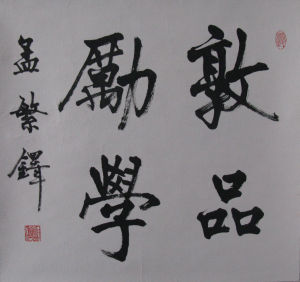 敦品
勵學
孟繁鐸